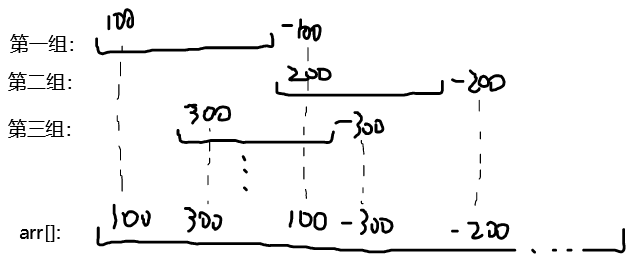 第一组: 100 -100
第二组: 200 -200
第三组: 300 -300
arr[]: 100 300 100 -300 -200